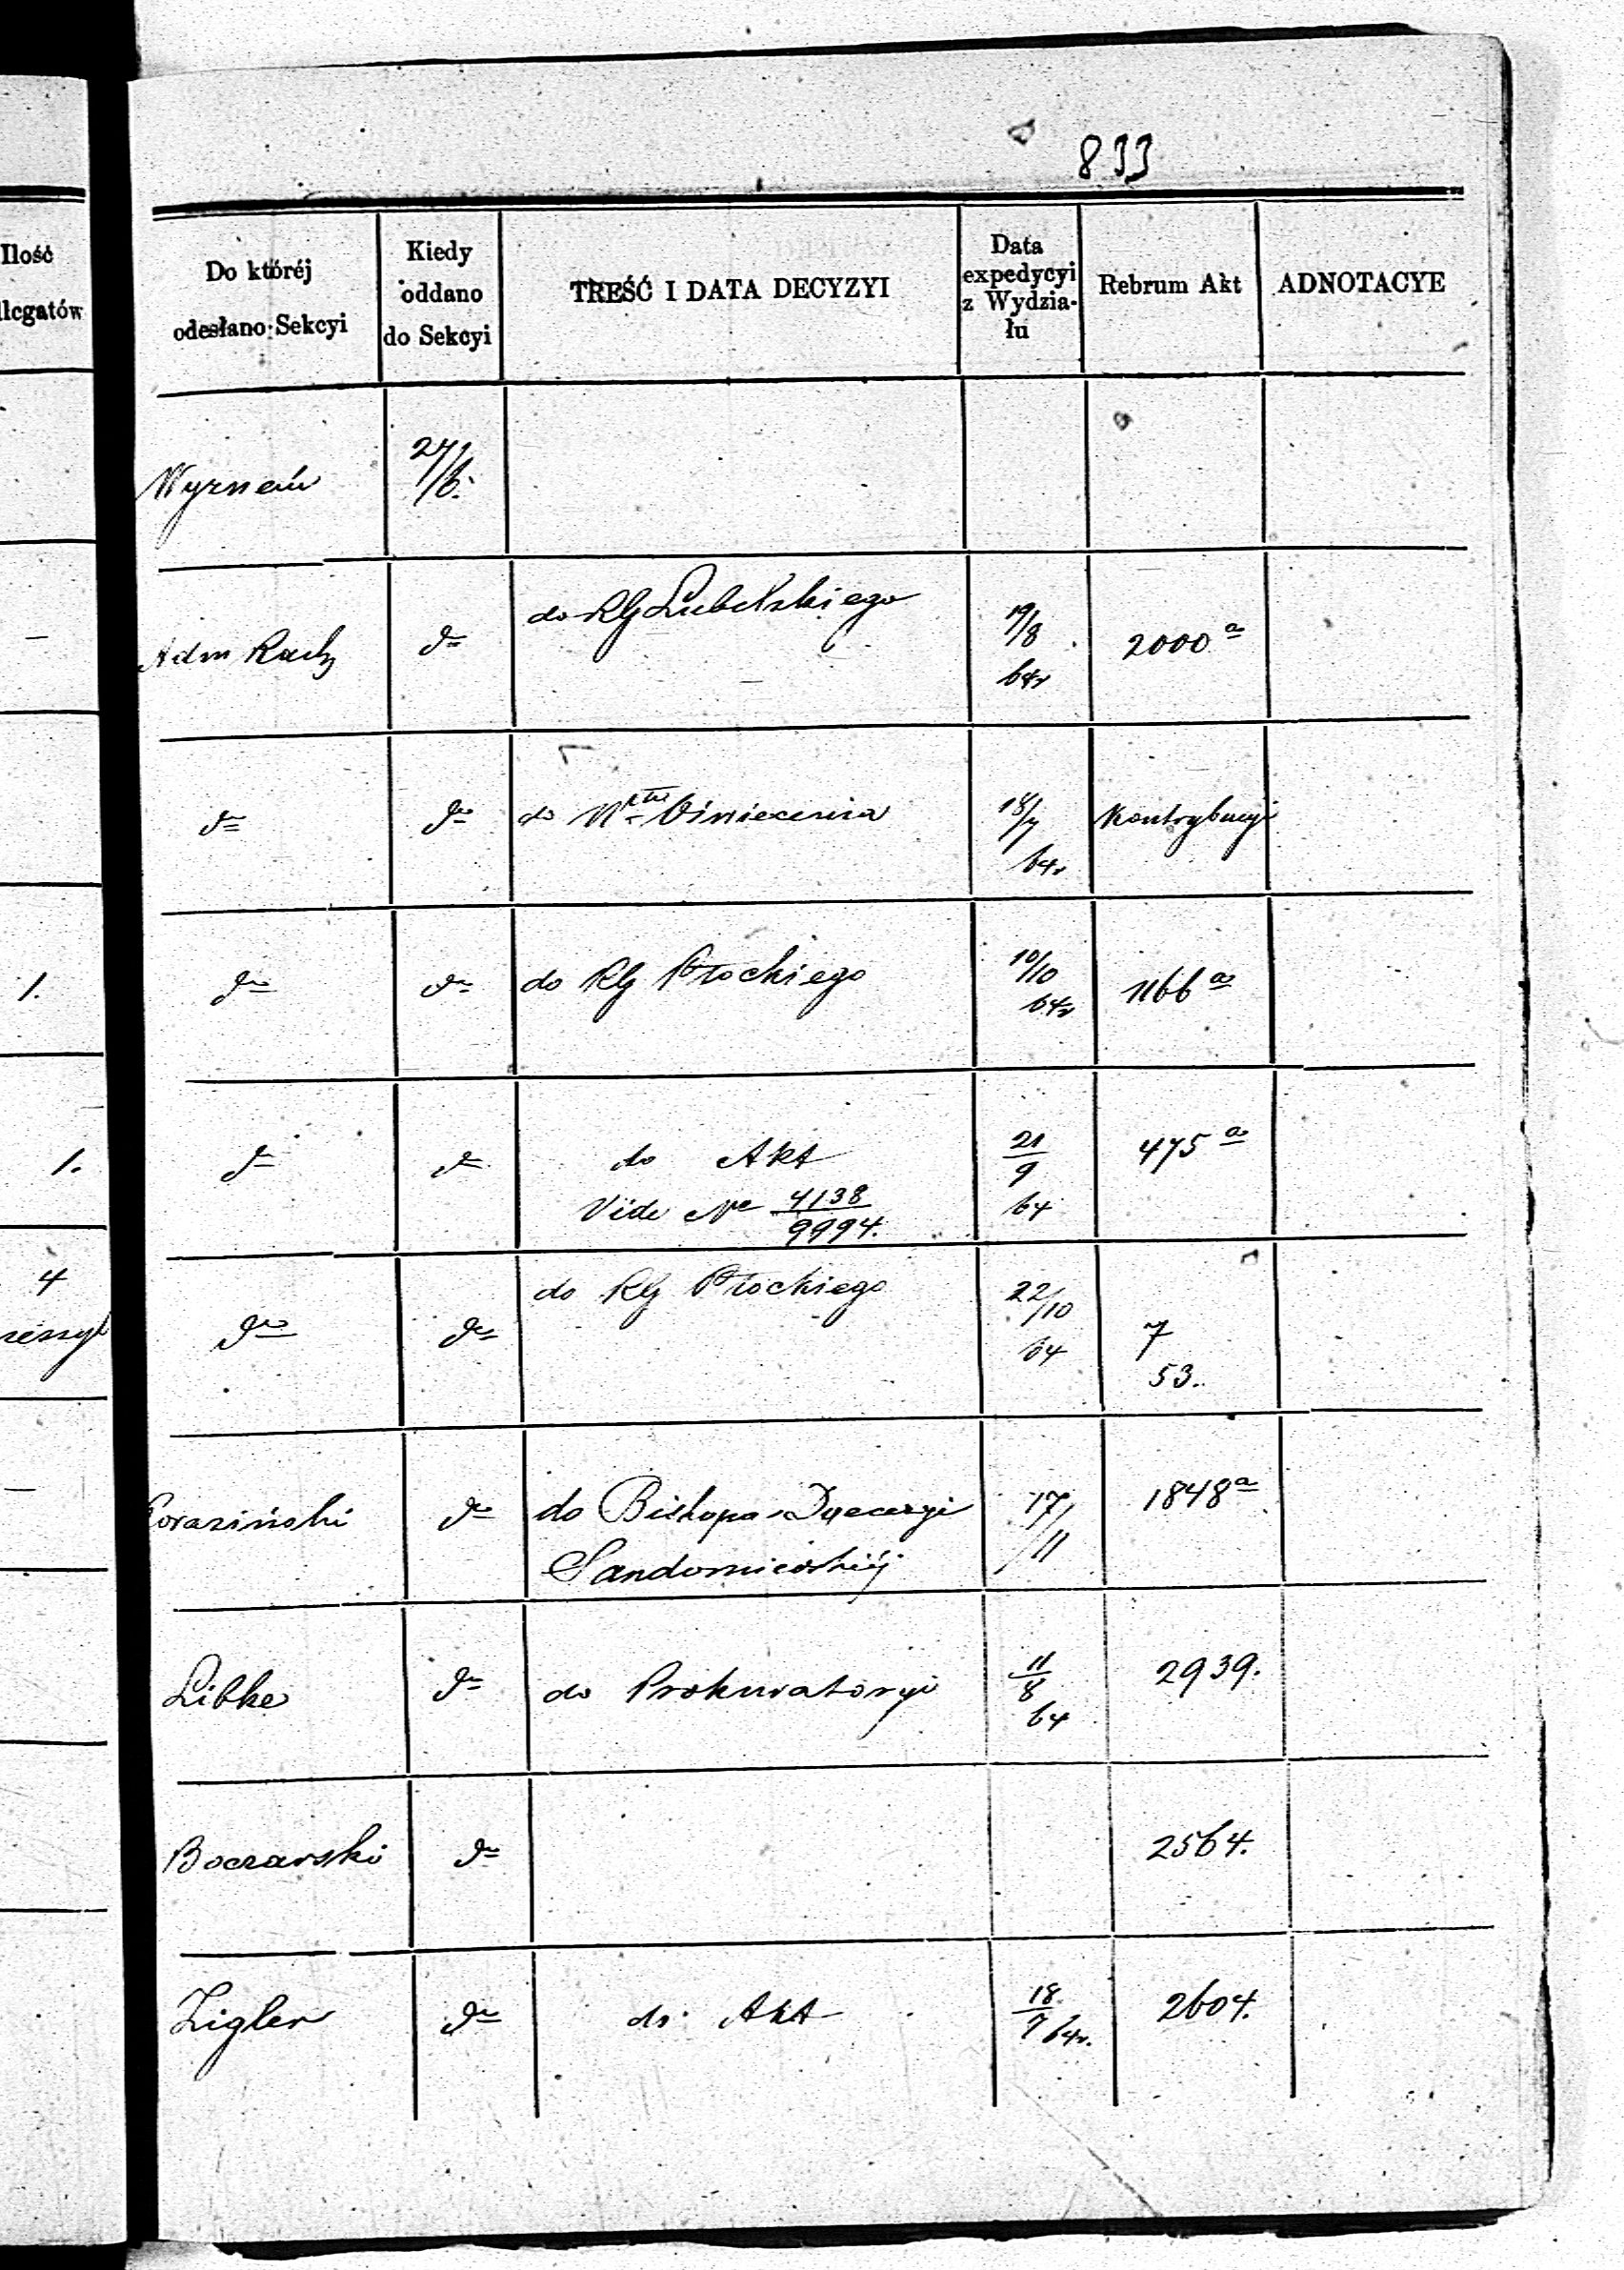 833
Ilość
llegatów
Do któréj
odesłano Sekcyi
Kiedy
oddano
do Sekcyi
TREŚĆ I DATA DECYZYI
Data
expedycyi
z Wydzia-
łu
Rebrum Akt
ADNOTACYE
27/6.
Adm Rach
do
do RG Lubelskiego
19/8
64r
2000 a
do
do
do Oświecenia
18/7
64r
Kontrybucyi
1.
do
do
do RG Płockiego
10/10
64r
1166 a
1.
do
do
do Akt
Vide No 4138/9994.
21/9
64
475 a
4
do
do
do RG Płockiego
22/10
64
7
53.
do
do Biskupa Dyecezyi
Sandomierskiéj
17/11
1848 a
Libke
do
do Prokuratoryi
11/8
64
2939.
Boczarski
do
2564.
Zigler
do
do Akt
18/7 64r.
2604.